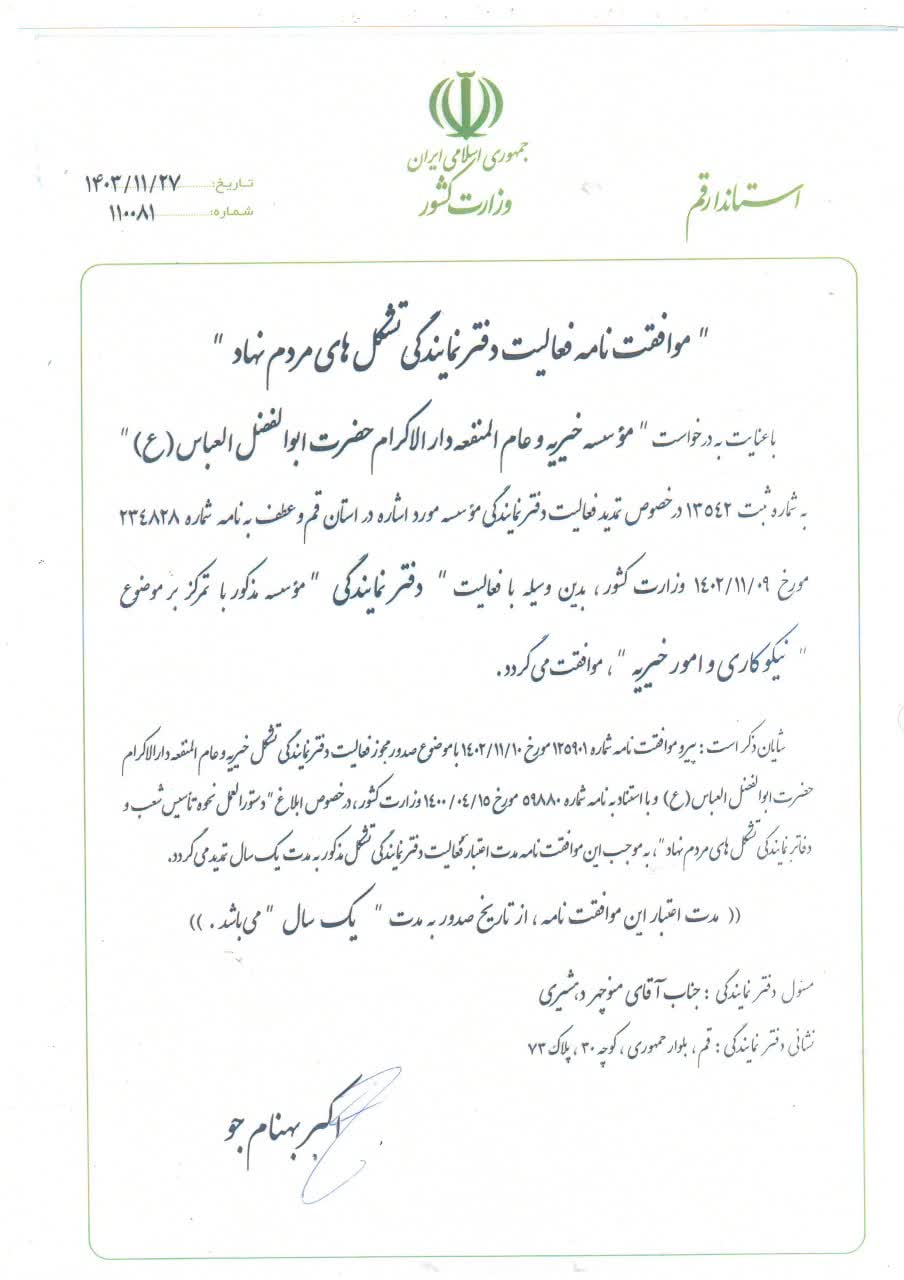 جمهوری اسلامی ایران
وزارت کشور
استاندار قم
تاریخ: ۱۴۰۳/۱۱/۲۷
شماره: ۱۱۰۰۸۱
" موافقت نامه فعالیت دفتر نمایندگی تشکل های مردم نهاد "
با عنایت به درخواست " مؤسسه خیریه و عام المنفعه دار الاکرام حضرت ابوالفضل العباس (ع) "
به شماره ثبت ۱۳۵۴۲ در خصوص تمدید فعالیت دفتر نمایندگی مؤسسه مورد اشاره در استان قم و عطف به نامه شماره ۲۳۴۸۲۸
مورخ ۱۴۰۲/۱۱/۰۹ وزارت کشور ، بدین وسیله با فعالیت " دفتر نمایندگی " مؤسسه مذکور با تمرکز بر موضوع
" نیکوکاری و امور خیریه "، موافقت می گردد.
شایان ذکر است : پیرو موافقت نامه شماره ۱۲۵۹۰۱ مورخ ۱۴۰۲/۱۱/۱۰ با موضوع صدور مجوز فعالیت دفتر نمایندگی تشکل خیریه و عام المنفعه دارالاکرام
حضرت ابوالفضل العباس (ع) و با استناد به نامه شماره ۵۹۸۸۰ مورخ ۱۴۰۰/۰۴/۱۵ وزارت کشور، در خصوص ابلاغ "دستورالعمل نحوه تأسیس شعب و
دفاتر نمایندگی تشکل های مردم نهاد"، به موجب این موافقت نامه مدت اعتبار فعالیت دفتر نمایندگی تشکل مذکور به مدت یک سال تمدید می گردد.
(( مدت اعتبار این موافقت نامه ، از تاریخ صدور به مدت " یک سال " می باشد . ))
مسئول دفتر نمایندگی : جناب آقای منوچهر دهشیری
نشانی دفتر نمایندگی : قم ، بلوار جمهوری ، کوچه ۳۰ ، پلاک ۷۳
اکبر بهنام جو